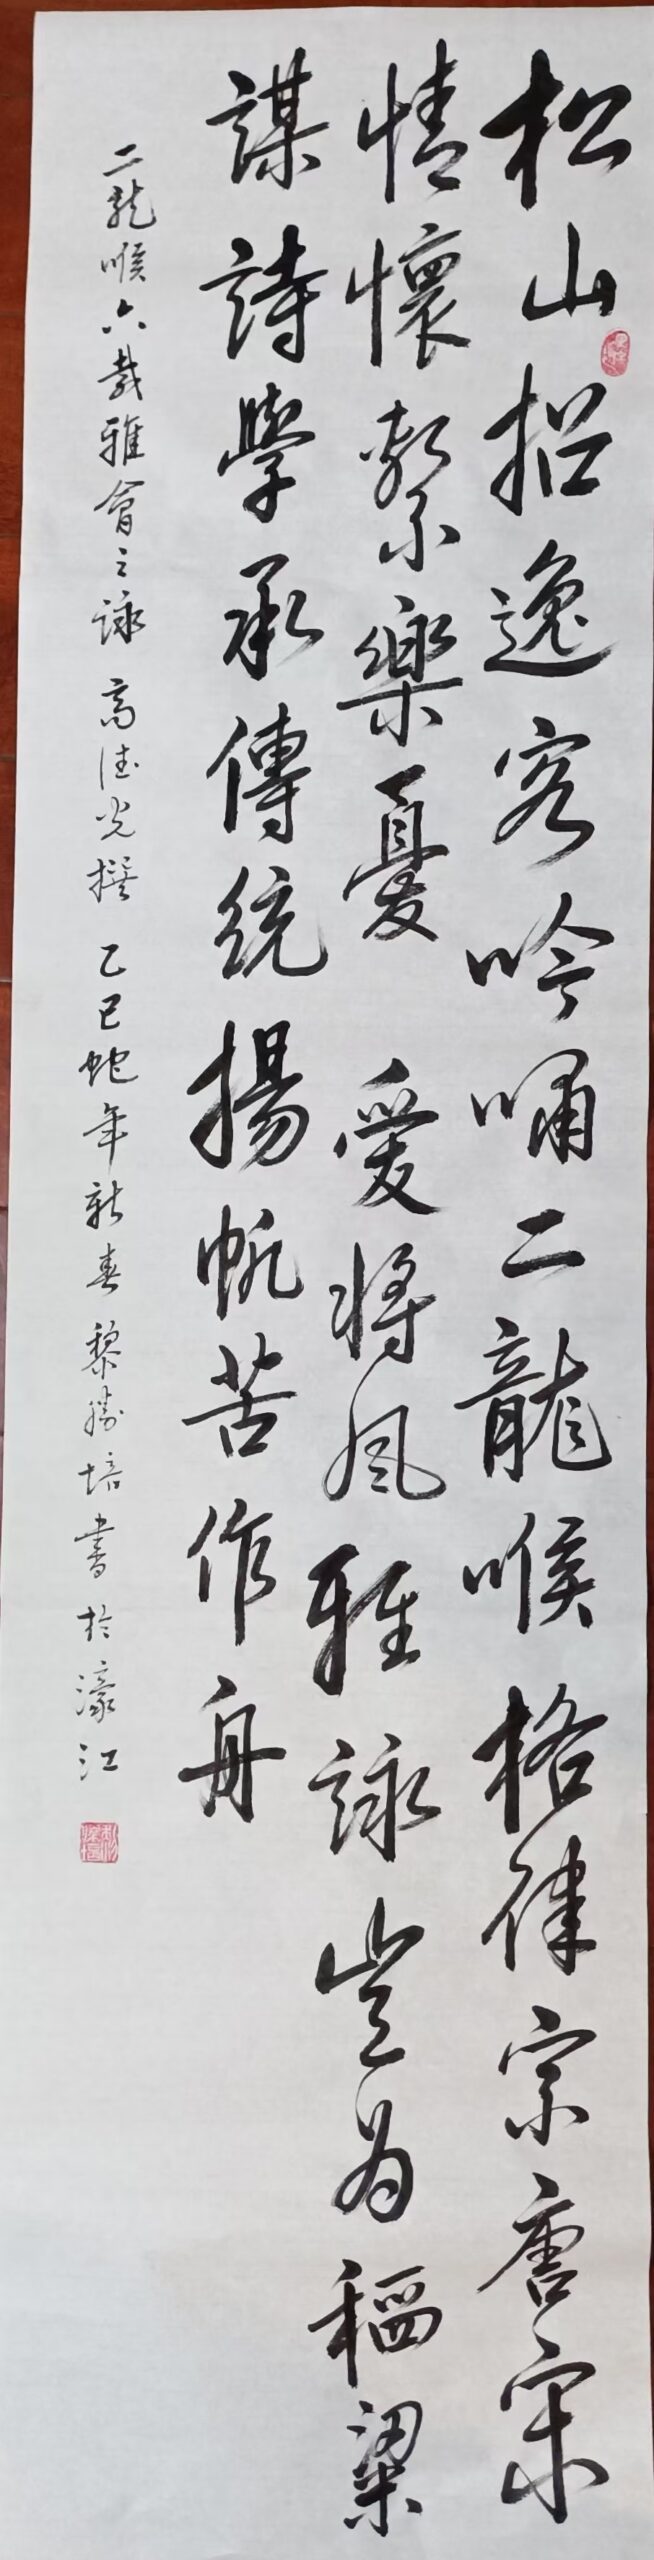 松山招逸客吟嘯二龍喉格律宗唐宋
情懷繫樂憂愛將風雅詠豈為稻粱
謀詩學承傳統揚帆苦作舟
二龍喉六載雅會之詠 高德光撰 乙巳蛇年新春 黎勝培書於濠江